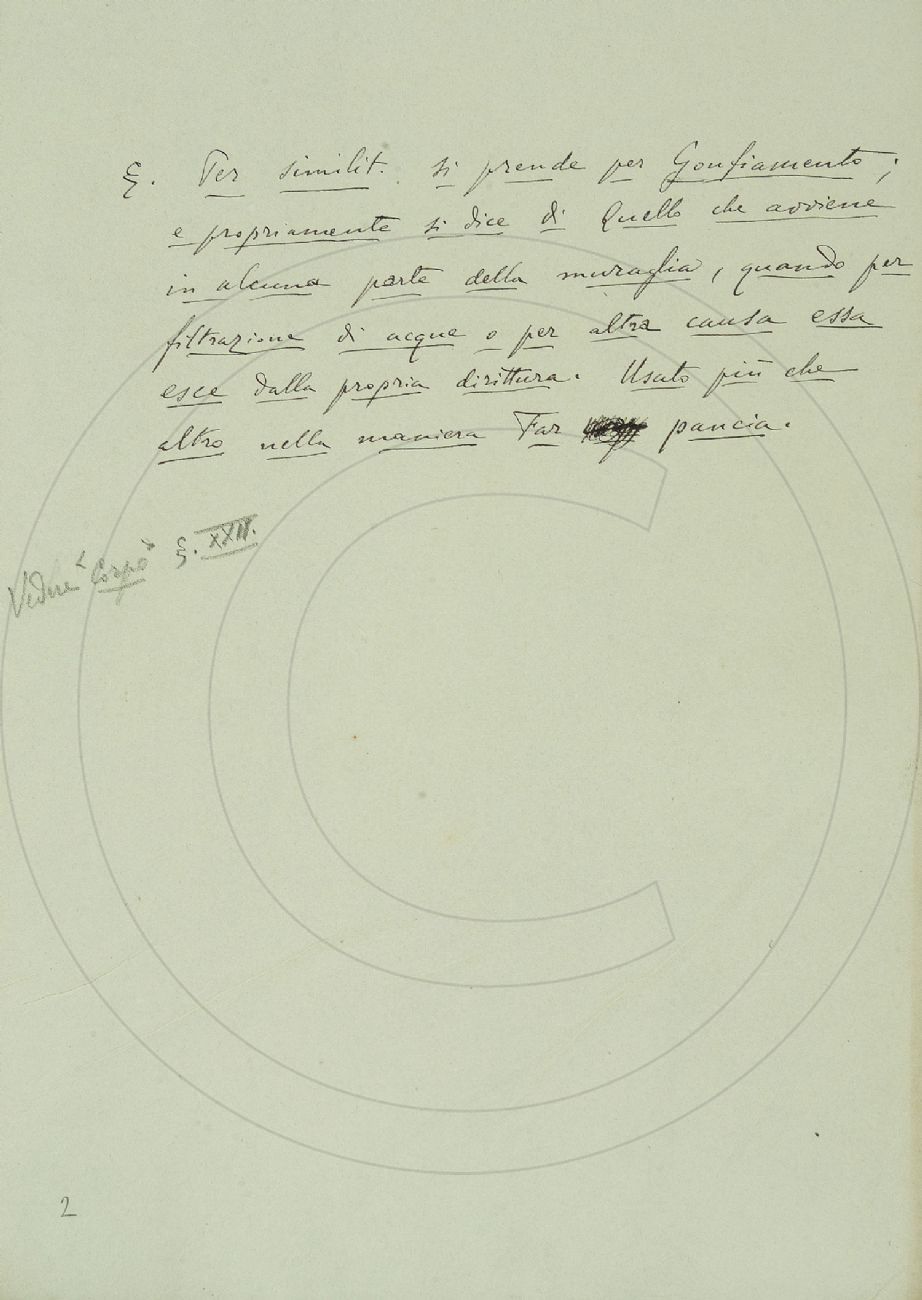 §. Per similit. si prende per Gonfiamento;
e propriamente si dice di Quello che avviene
in alcuna parte della muraglia, quando per
filtrazione di acque o per altra causa essa
esce dalla propria dirittura. Usato più che
altro nella maniera Far pancia.
Vedere "Corpo" §. XXII.
2